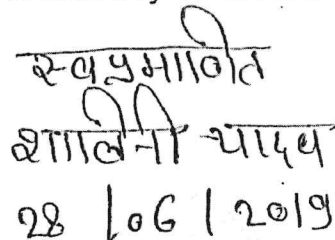 स्वप्रमाणित
शालिनी यादव
28/06/2019